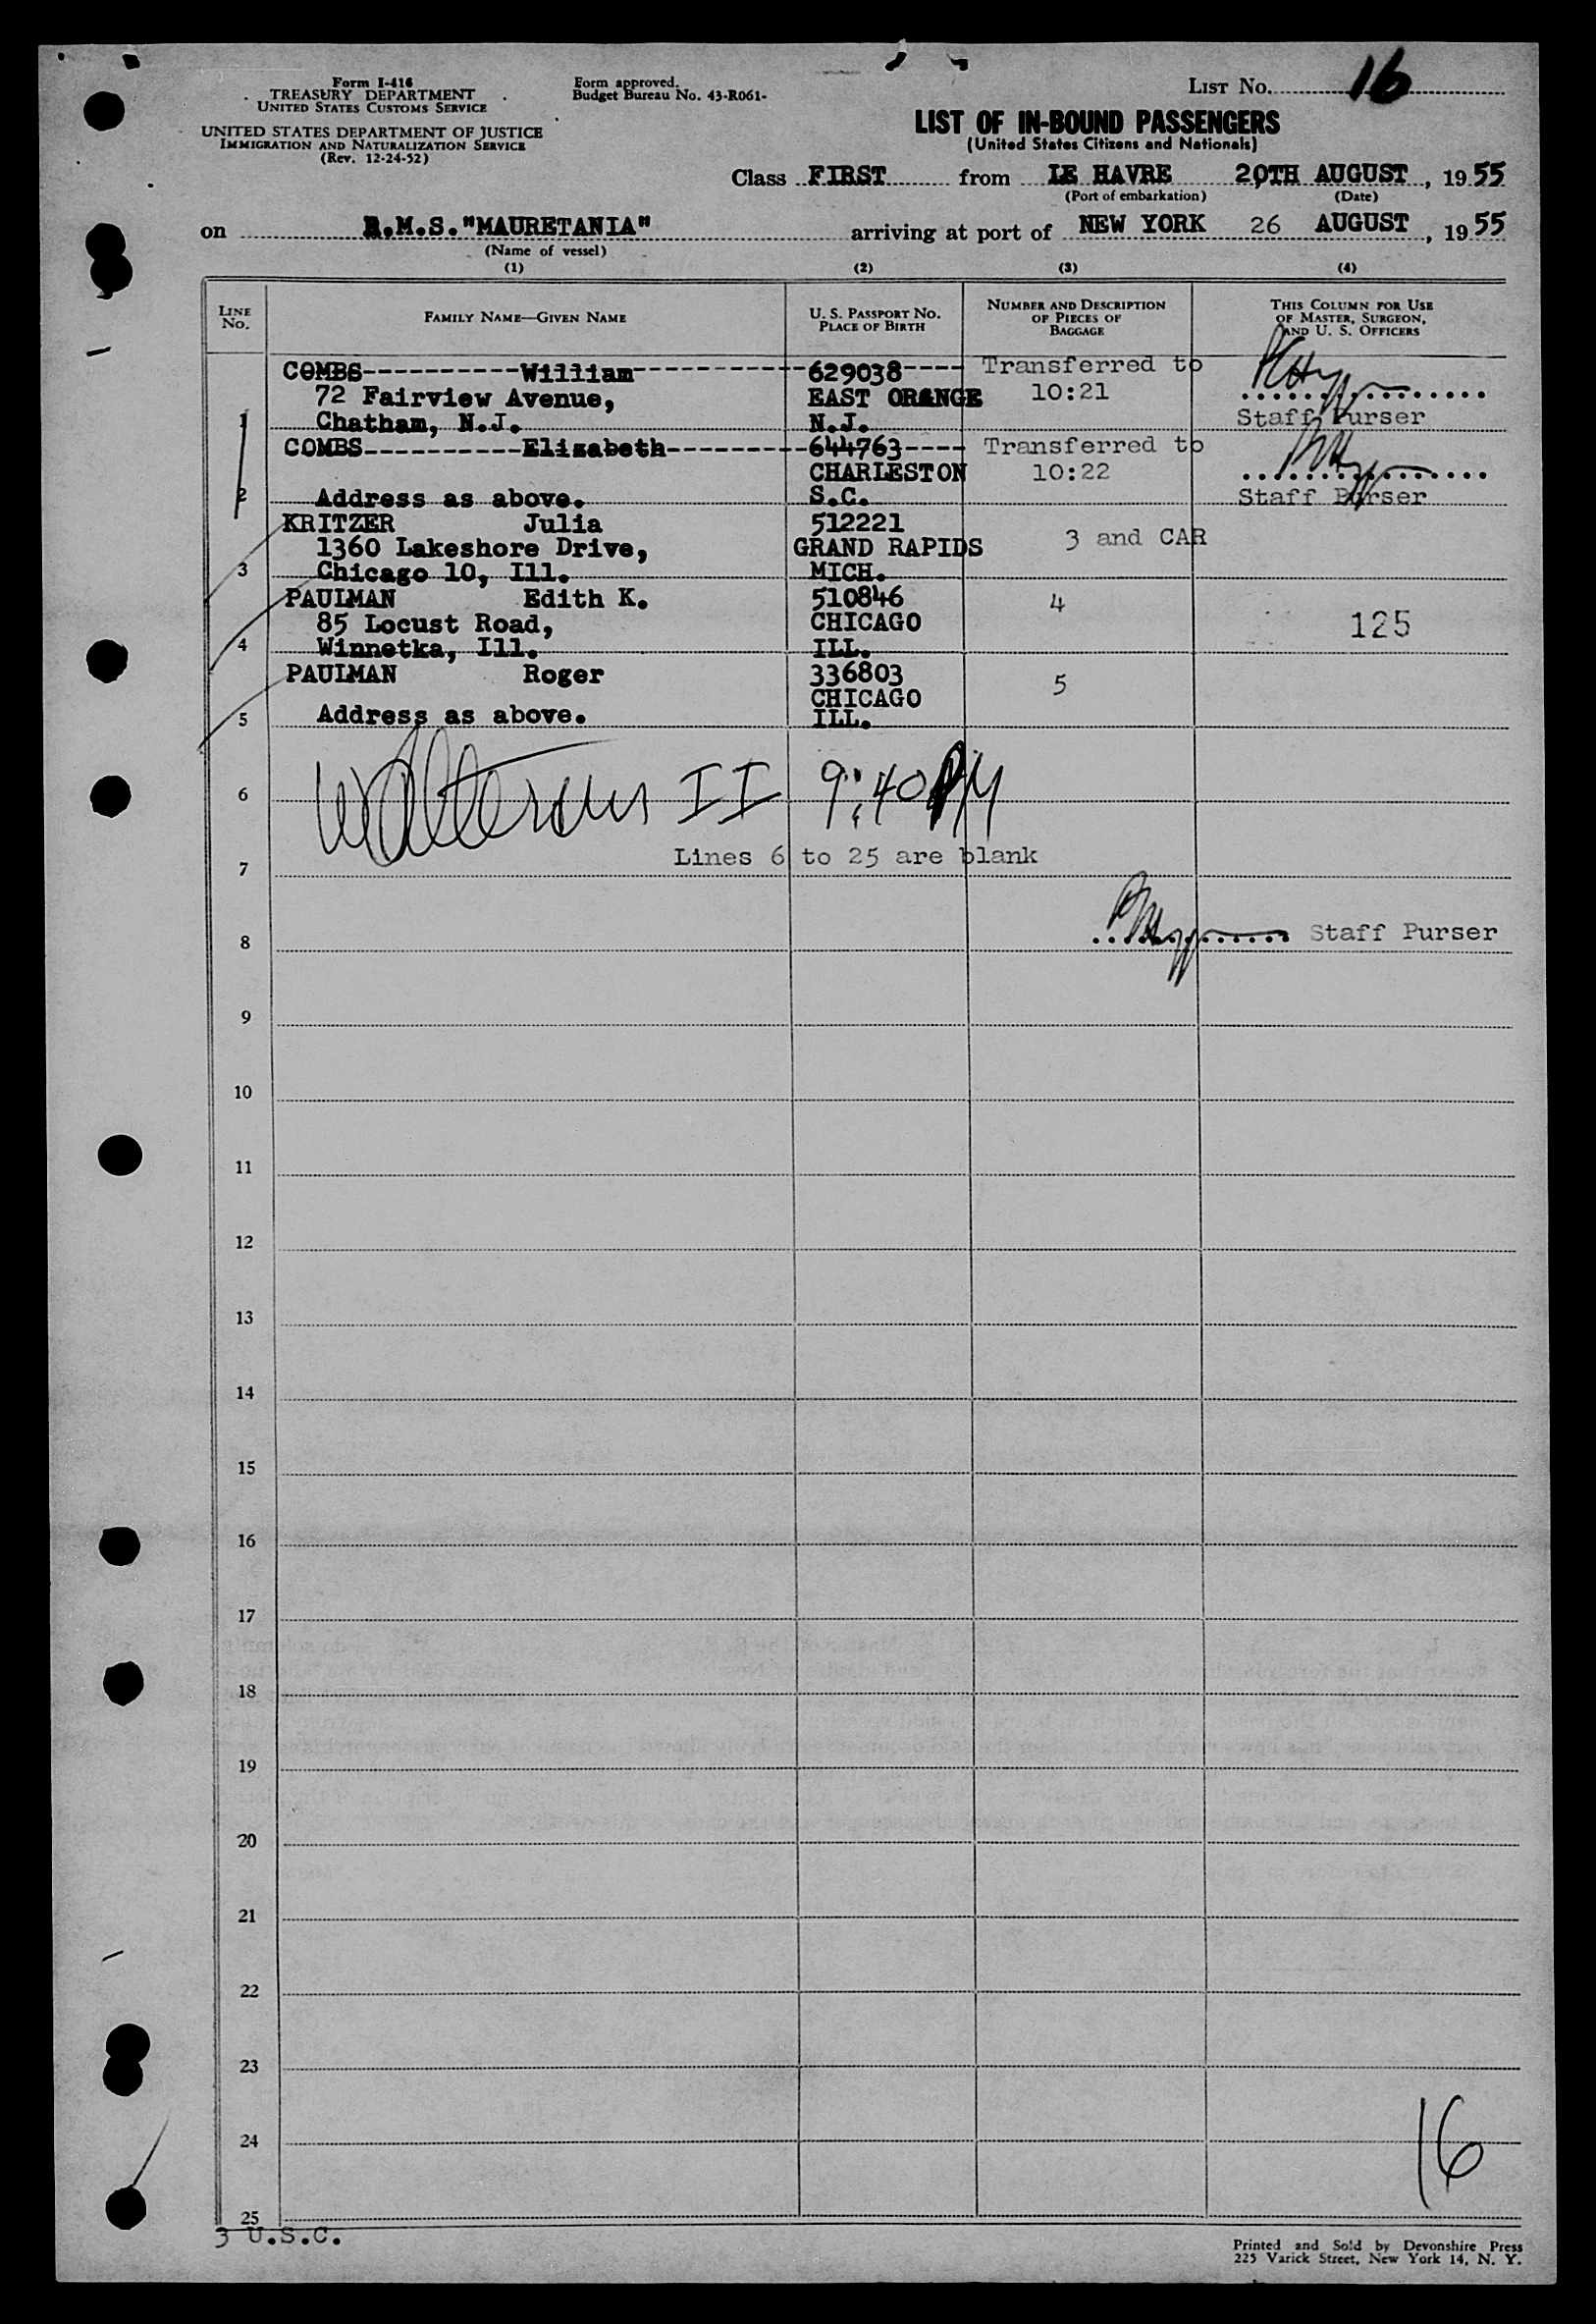 Form I-416
TREASURY DEPARTMENT
UNITED STATES CUSTOMS SERVICE
UNITED STATES DEPARTMENT OF JUSTICE
IMMIGRATION AND NATURALIZATION SERVICE
(Rev. 12-24-52)
Form approved.
Budget Bureau No. 43-R061-
LIST No. 16
LIST OF IN-BOUND PASSENGERS
(United States Citizens and Nationals)
Class FIRST from LE HAVRE 20TH AUGUST, 1955
(Port of embarkation) (Date)
on R.M.S."MAURETANIA" arriving at port of NEW YORK 26 AUGUST, 1955
(Name of vessel)
(1) (2) (3) (4)
LINE No. FAMILY NAME—GIVEN NAME U. S. PASSPORT No. PLACE OF BIRTH NUMBER AND DESCRIPTION OF PIECES OF BAGGAGE THIS COLUMN FOR USE OF MASTER, SURGEON, AND U. S. OFFICERS
COMBS----------William-----------629038---- Transferred to
72 Fairview Avenue, EAST ORANGE 10:21
1 Chatham, N.J. N.J. Staff Purser
COMBS----------Elizabeth---------644763---- Transferred to
CHARLESTON 10:22
2 Address as above. S.C. Staff Purser
KRITZER Julia 512221
1360 Lakeshore Drive, GRAND RAPIDS 3 and CAR
3 Chicago 10, Ill. MICH.
PAULMAN Edith K. 510846 4
85 Locust Road, CHICAGO 125
4 Winnetka, Ill. ILL.
PAULMAN Roger 336803 5
CHICAGO
5 Address as above. ILL.
6 II 9:40 PM
Lines 6 to 25 are blank
7
8 Staff Purser
9
10
11
12
13
14
15
16
17
18
19
20
21
22
23
24 16
25
3 U.S.C.
Printed and Sold by Devonshire Press
225 Varick Street, New York 14, N. Y.